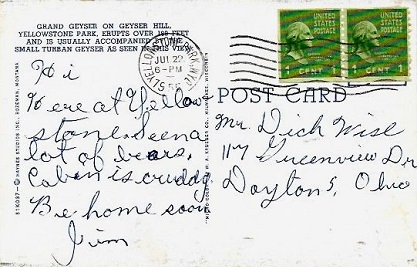 GRAND GEYSER ON GEYSER HILL,
YELLOWSTONE PARK, ERUPTS OVER FEET
AND IS USUALLY ACCOMPANIED BY THE
SMALL TURBAN GEYSER AS SEEN IN THIS VIEW
YELLOWSTONE PARK
JUL 22
6-PM
WYO.
UNITED
STATES
POSTAGE
1 CENT
UNITED
STATES
POSTAGE
1 CENT
POST CARD
Hi
Here at Yellow
stone. Seen a
lot of bears.
Cabin is cruddy
Be home soon
Jim
Mr. Dick Wise
117 Greenview Dr
Dayton, Ohio
HAYNES STUDIOS INC., BOZEMAN, MONTANA